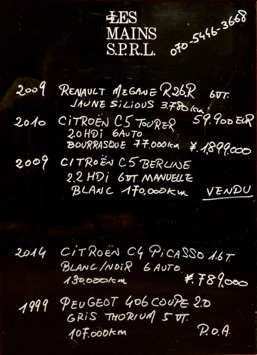 LES
MAINS
S.P.R.L.
070-5446-3668
2009 RENAULT MEGANE R26R 6VT.
JAUNE SILIOUS 3.780km
59.900EUR
2010 CITROËN C5 TOURER
2.0HDi 6AUTO
BOURRASQUE 77.000km ¥.1,899,000
2009 CITROËN C5 BERLINE
2.2 HDi 6VT MANUELLE
BLANC 170,000km VENDU
2014 CITROËN C4 PICASSO 1.6T
BLANC/NOIR 6 AUTO
130,000km ¥.789,000
1999 PEUGEOT 406 COUPE 2.0
GRIS THORIUM 5 VT.
107.000km P.O.A.